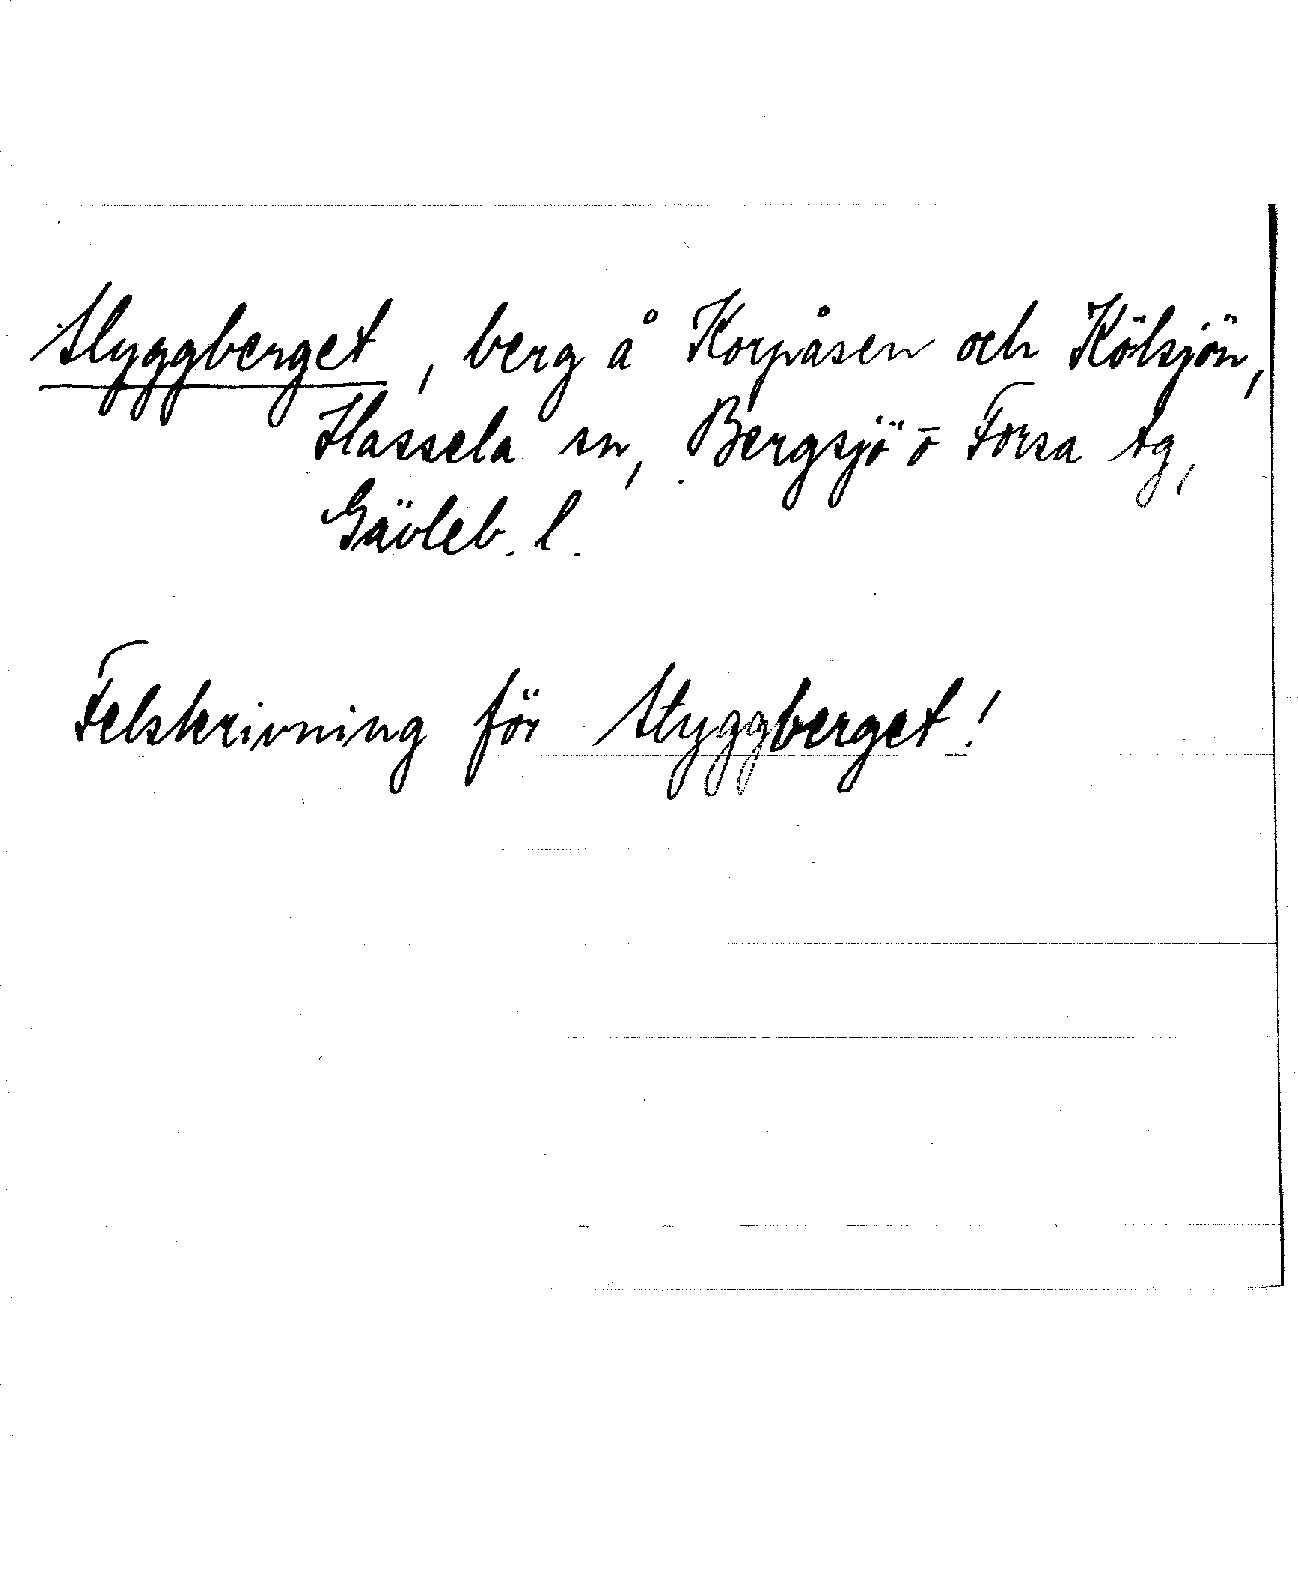 Slyggberget, berg å Korpåsen och Kölsjön,
Hassela sn, Bergsjö o Forsa tg,
Gävleb. l.
Felskrivning för Styggberget!